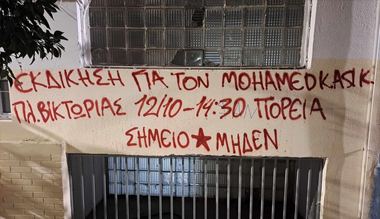 ΕΚΔΙΚΗΣΗ ΓΙΑ ΤΟΝ MOHAMED KASIK
ΠΛ. ΒΙΚΤΩΡΙΑΣ 12/10-14:30 ΠΟΡΕΙΑ
ΣΗΜΕΙΟ ★ ΜΗΔΕΝ